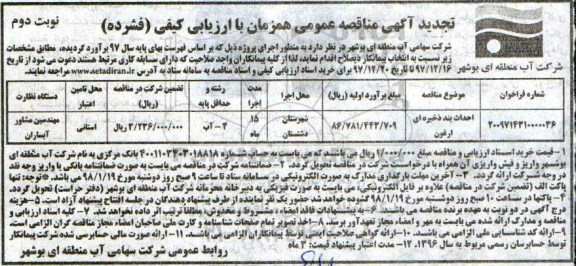 نوبت دوم
تجدید آگهی مناقصه عمومی همزمان با ارزیابی کیفی (فشرده)
شرکت سهامی آب منطقه ای بوشهر در نظر دارد به منظور اجرای پروژه ذیل که بر اساس فهرست بهای پایه سال ۹۷ برآورد گردیده، مطابق مشخصات
زیر نسبت به انتخاب پیمانکار ذیصلاح اقدام نماید، لذا از کلیه پیمانکاران واجد صلاحیت که دارای مسابقه کاری مرتبط هستند دعوت می شود از تاریخ
۹۷/۱۲/۱۶ تا تاریخ ۹۷/۱۲/۲۰ برای خرید اسناد ارزیابی کیفی و اسناد مناقصه به سامانه ستاد به آدرس www.setadiran.ir مراجعه نمایند.
شرکت آب منطقه ای بوشهر
شماره فراخوان موضوع مناقصه محل اجرا مبلغ برآورد اولیه (ریال) مدت اجرا رشته و حداقل پایه تضمین شرکت در مناقصه (ریال) محل تامین اعتبار دستگاه نظارت
۲۰۰۹۷۱۴۳۱۰۰۰۰۰۳۶ احداث بند ذخیره ای ارغون شهرستان دشتستان ۸۶/۷۸۱/۴۴۳/۷۰۹ ۱۵ ماه ۴-آب ۳/۳۳۶/۰۰۰/۰۰۰ استانی مهندسین مشاور آبساران
۱- قیمت خرید اسناد ارزیابی و مناقصه مبلغ ۱/۰۰۰/۰۰۰ ریال می باشد که می بایست به حساب شماره ۴۰۰۱۱۰۳۴۰۳۰۱۸۸۱۸ بانک مرکزی به نام شرکت آب منطقه ای
بوشهر واریز و فیش واریزی آن همراه با درخواست شرکت در مناقصه تحویل گردد. ۲- ضمانتنامه شرکت در مناقصه می بایست به صورت ضمانتنامه بانکی یا واریز وجه نقد
در وجه شرکت ارائه گردد. ۳- آخرین مهلت بارگذاری مدارک به صورت الکترونیکی در سامانه ستاد تا ساعت ۹ صبح روز دوشنبه مورخ ۹۸/۱/۱۹ می باشد. توجه: تنها
پاکت الف (تضمین شرکت در مناقصه) علاوه بر فایل الکترونیکی می بایست به صورت فیزیکی به دبیرخانه محرمانه شرکت آب منطقه ای بوشهر (دفتر حراست) تحویل گردد.
۴- پاکتها در ساعت ۱۰ صبح روز دوشنبه مورخ ۹۸/۱/۱۹ گشوده خواهد شد حضور یک نفر نماینده از طرف پیشنهاد دهندگان در جلسه افتتاح پیشنهاد آزاد است. ۵- هزینه
درج آگهی در دو نوبت به عهده برنده مناقصه می باشد. ۶- به پیشنهادات فاقد امضاء، مشروط و مخدوش مطلقا ترتیب اثر داده نخواهد شد. ۷- کلیه اسناد ارزیابی و
مناقصه و مدارک ارائه شده می بایست به مهر و امضاء مجاز تعهدآور برسد. ۸- اخذ تصویر تمام صفحات شناسنامه و کارت ملی صاحبان امضاء مجاز مناقصه گران الزامی است.
۹- ارائه کد شناسایی ملی الزامی می باشد. ۱۰- ارائه گواهی صلاحیت ایمنی توسط پیمانکاران الزامی می باشد. ۱۱- ارائه صورت مالی حسابرسی شده شرکت پیمانکار
توسط حسابرسان رسمی مربوط به سال ۱۳۹۶. ۱۲- مدت اعتبار پیشنهاد قیمت: ۳ ماه
روابط عمومی شرکت سهامی آب منطقه ای بوشهر